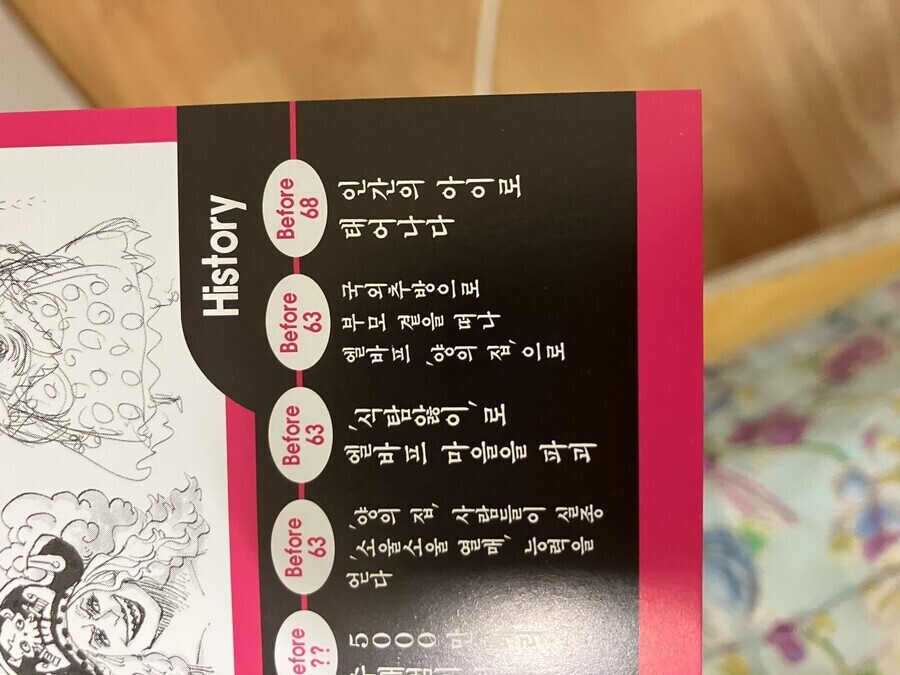 History
Before
68
인간의 아이로
태어나다
Before
63
국외추방으로
부모 곁을 떠나
엘바프 '양의 집'으로
Before
63
'식탐앓이'로
엘바프 마을을 파괴
Before
63
'양의 집' 사람들이 실종
'소울소울 열매' 능력을
얻다
efore
??
5000만